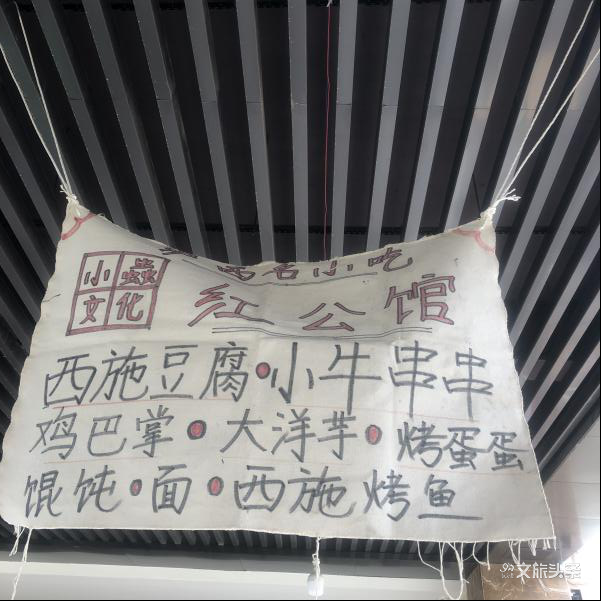 西名小吃
小蟲
文化
红公馆
西施豆腐·小牛串串
鸡巴掌·大洋芋·烤蛋蛋
馄饨·面·西施烤鱼
文旅头条